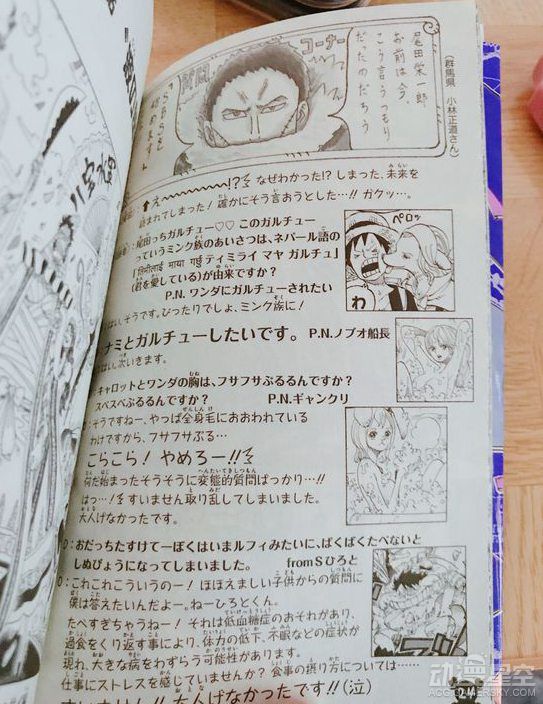 コーナー
質問
尾田栄一郎
お前は今、
こう言うつもり
だったのだろう
(群馬県 小林正道さん)
え〜〜〜〜!? なぜわかった!? しまった、未来を
読まれてしまった! 確かにそう言おうとした…!! ガクッ…。
尾田っちガルチュー♡♡ このガルチュー
っていうミンク族のあいさつは、ネパール語の
「तिमीलाई माया गर्छु ティミライ マヤ ガルチュ」
(君を愛している)が由来ですか?
P.N. ワンダにガルチューされたい
はい、そうです。ぴったりでしょ。ミンク族に!
ペロッ
わ
ナミとガルチューしたいです。 P.N.ノブオ船長
はい次いきます。
キャロットとワンダの胸は、フサフサぶるるんですか?
スベスベぶるるんですか? P.N.ギャンクリ
そうですねー、やっぱ全身毛におおわれている
わけですから、フサフサぶる…
こらこら! やめろー!!
何だ始まったそうそうに変態的質問ばっかり…!!
はっ…! すいません取り乱してしまいました。
大人げなかったです。
D:おだっちたすけてーぼくはいまルフィみたいに、ばくばくたべないと
しぬびょうになってしまいました。 fromSひろと
O:これこれこういうのー! ほほえましい子供からの質問に
僕は答えたいんだよー。ねーひろとくん。
たべすぎちゃうねー! それは低血糖症のおそれがあり、
過食をくり返す事により、体力の低下、不眠などの症状が
現れ、大きな病をわずらう可能性があります。
仕事にストレスを感じていませんか? 食事の摂り方については……
すいません!! 大人げなかったです!!(泣)
动漫星空
ACG.GAMERSKY.COM